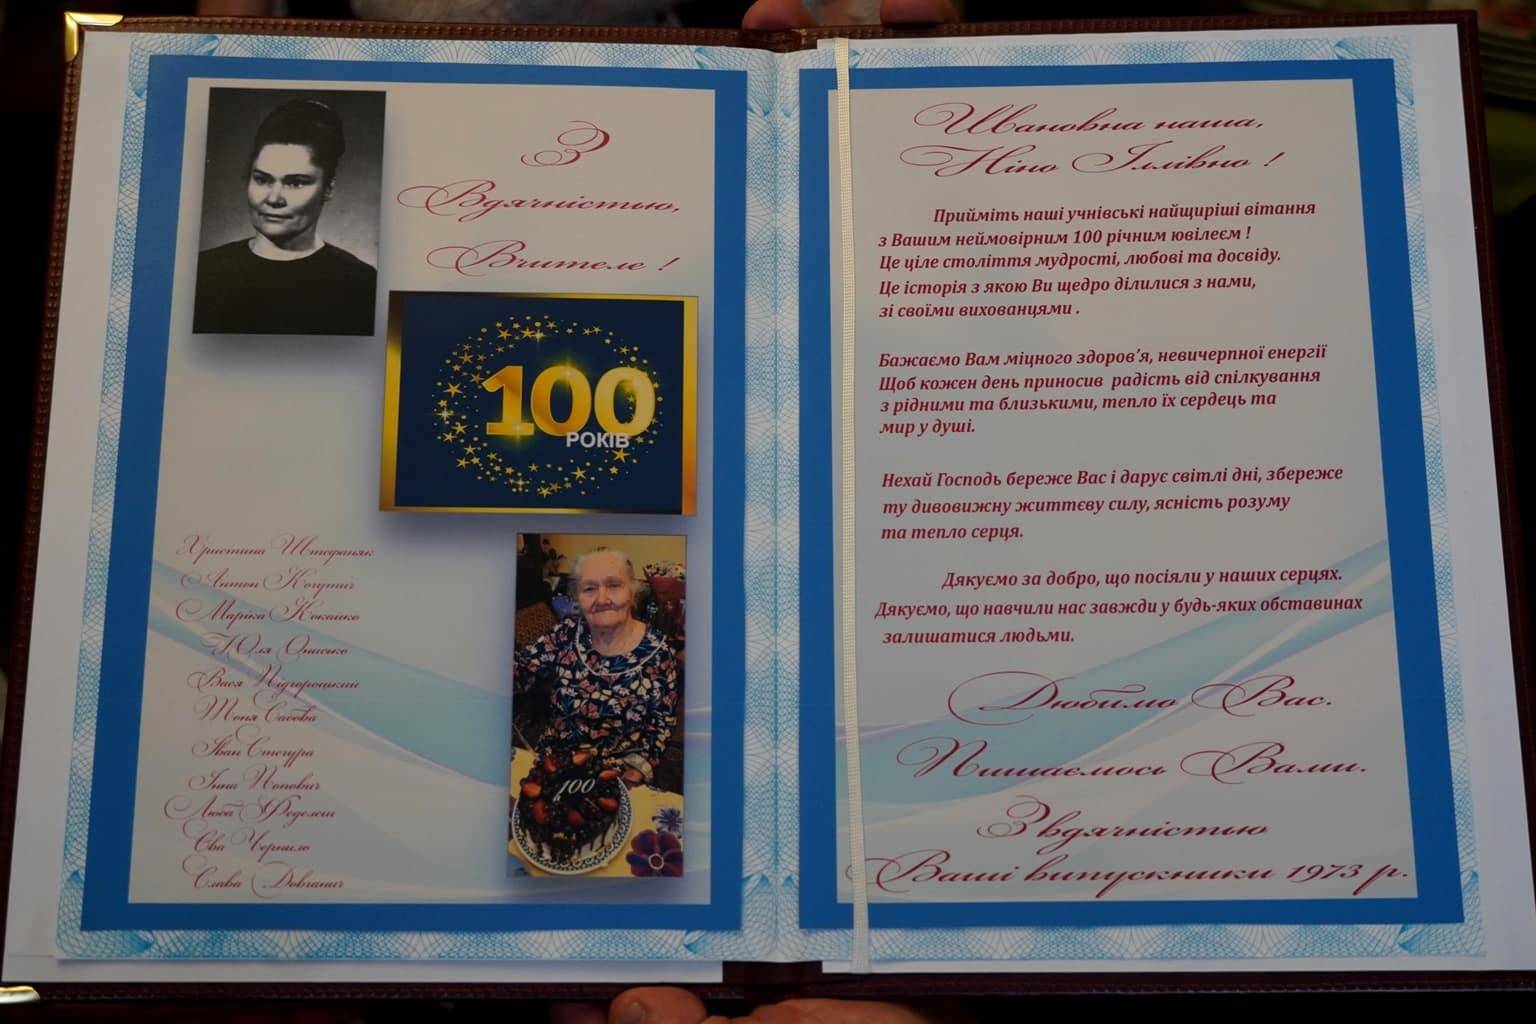 З
Вдячністю,
Вчителе !
100
РОКІВ
100
Христина Штефаняк
Антон Когутич
Маріка Кокайко
Юля Онисько
Вася Підгороцький
Тоня Сабова
Іван Стегура
Інна Попович
Люба Феделеш
Єва Чернило
Слава Довганич
Шановна наша,
Ніно Іллівно !
Прийміть наші учнівські найщиріші вітання
з Вашим неймовірним 100 річним ювілеєм !
Це ціле століття мудрості, любові та досвіду.
Це історія з якою Ви щедро ділилися з нами,
зі своїми вихованцями .
Бажаємо Вам міцного здоров’я, невичерпної енергії
Щоб кожен день приносив радість від спілкування
з рідними та близькими, тепло їх сердець та
мир у душі.
Нехай Господь береже Вас і дарує світлі дні, збереже
ту дивовижну життєву силу, ясність розуму
та тепло серця.
Дякуємо за добро, що посіяли у наших серцях.
Дякуємо, що навчили нас завжди у будь-яких обставинах
залишатися людьми.
Любимо Вас.
Пишаємось Вами.
З вдячністю
Ваші випускники 1973 р.